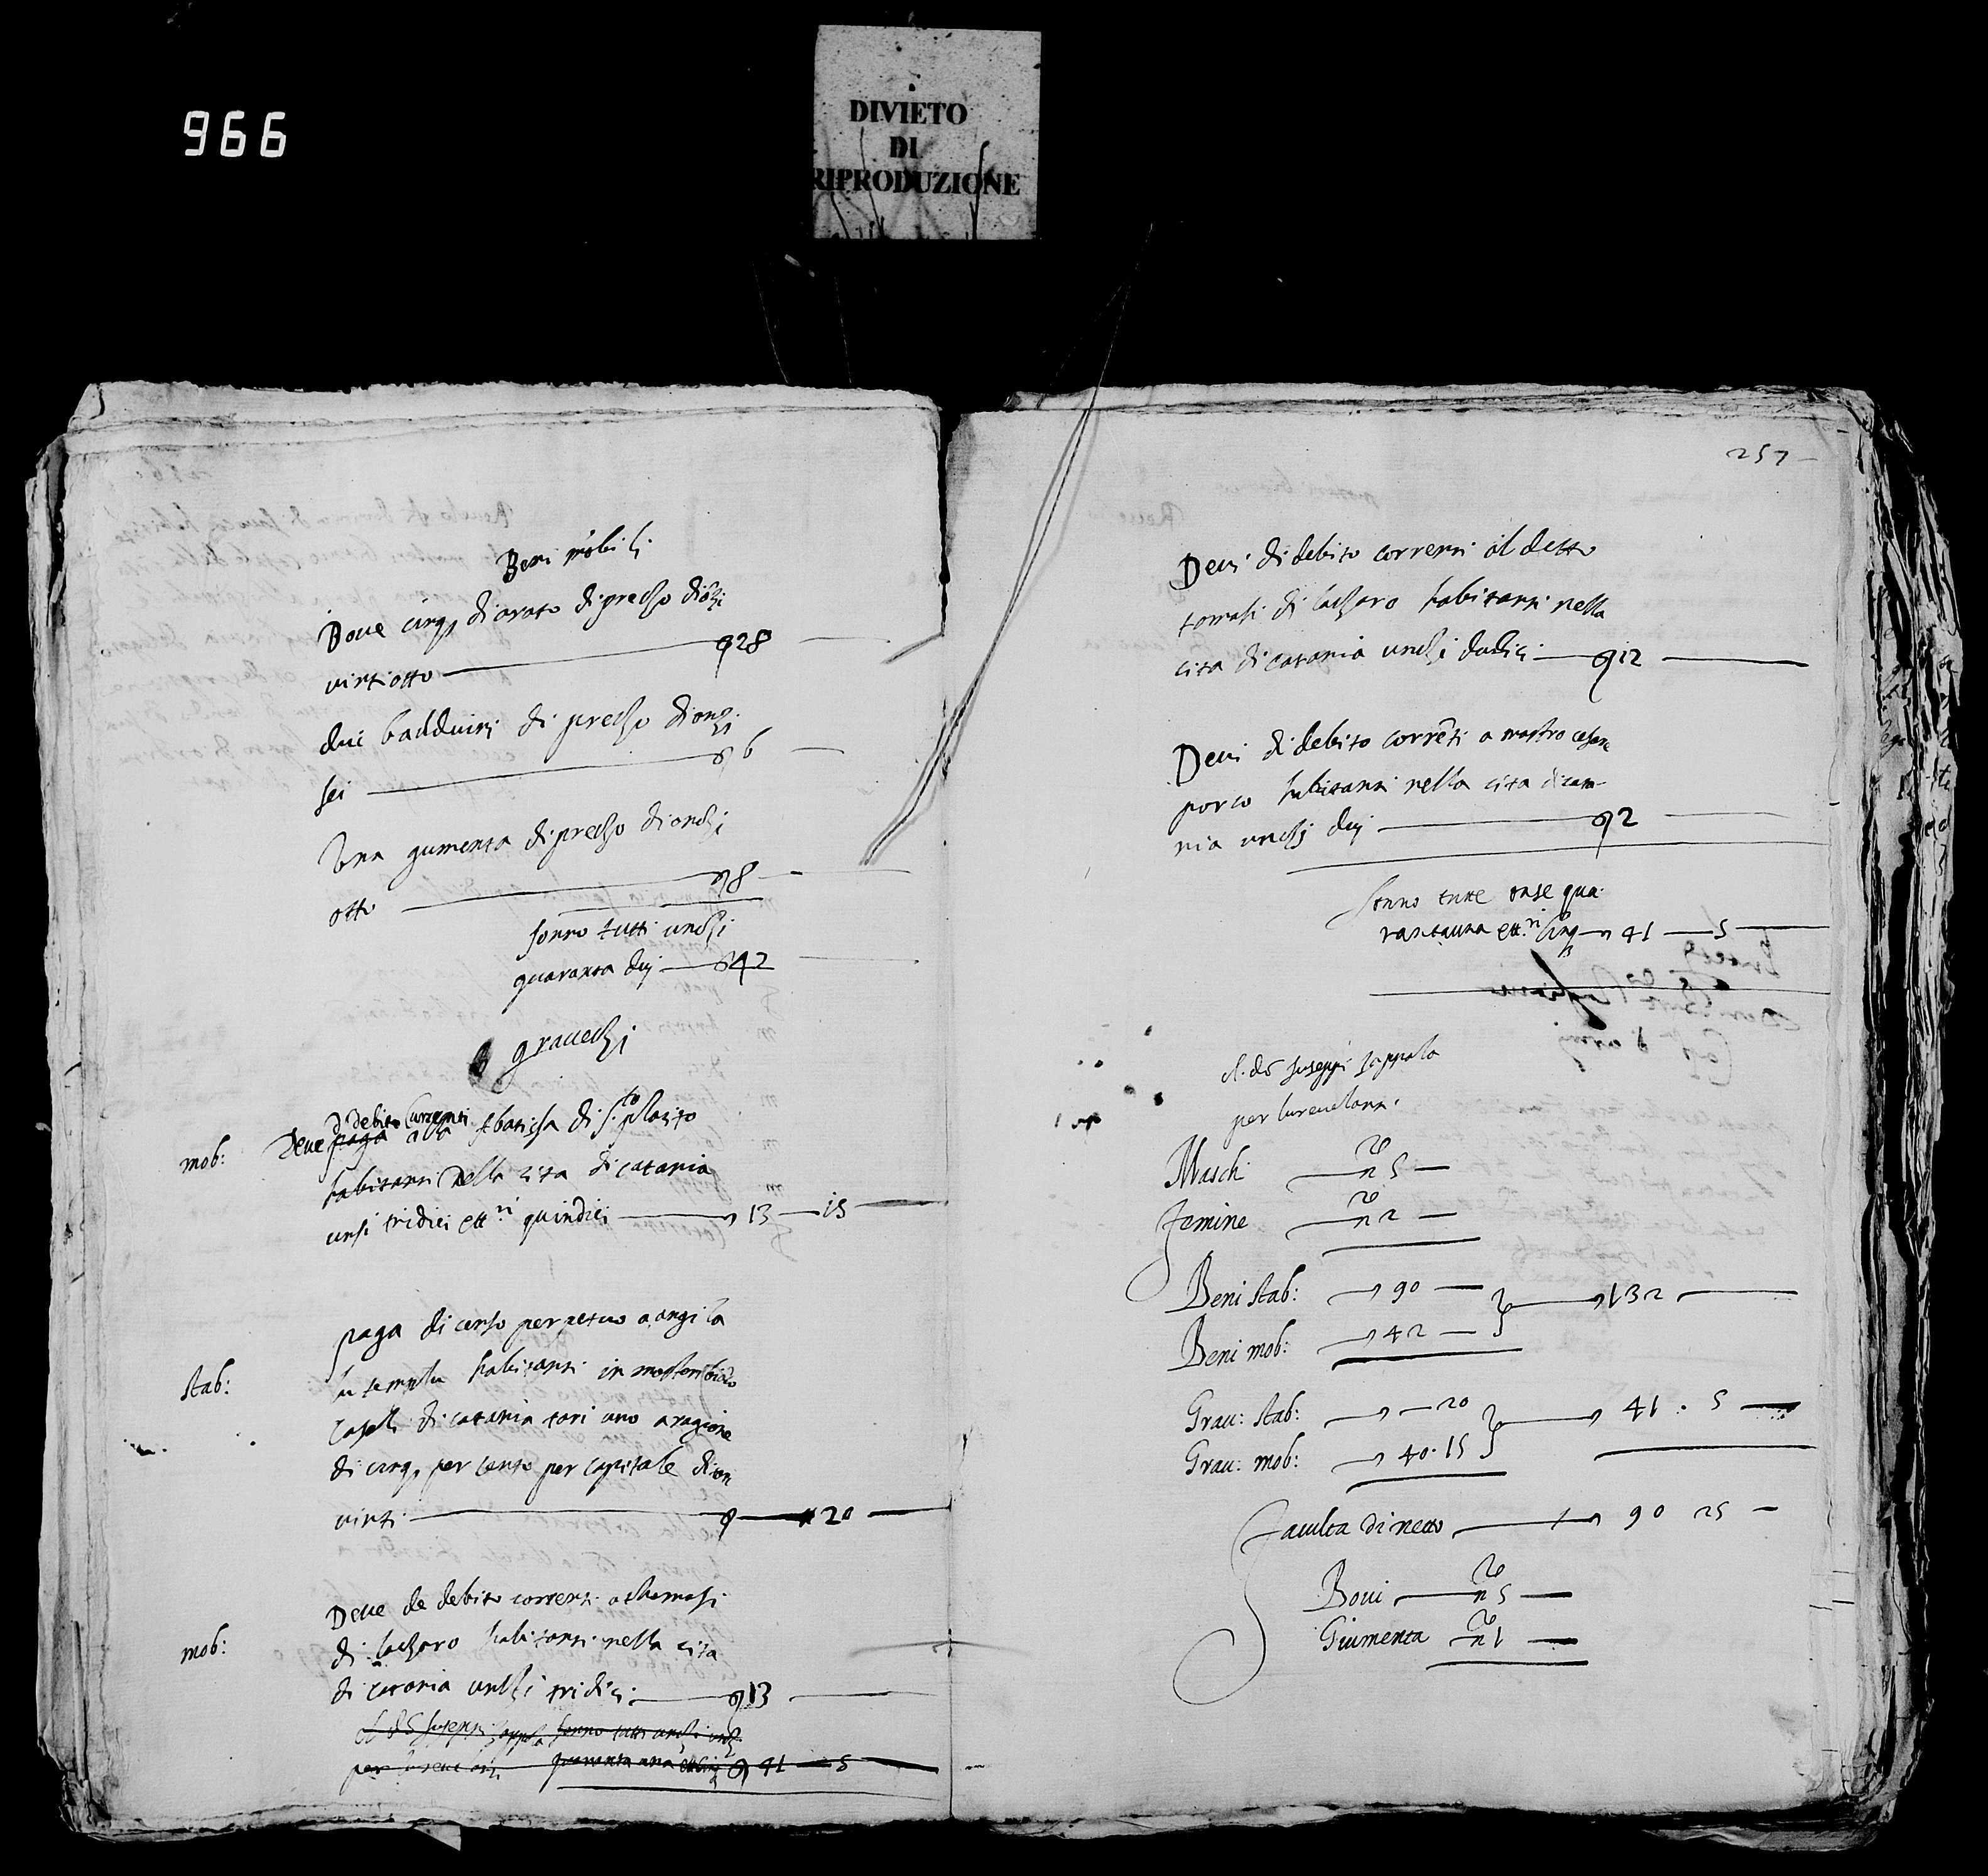 966
DIVIETO
DI
RIPRODUZIONE
Beni mobili
Bove cinq, di arato di preczo di onzi
vintiotto 28
dui badduini di preczo di onzi
sei 6
Una gumenta di preczo di onczi
otto 8
sonno tutti unczi
quaranta dui 42
graveczi
di debito currenti
mob: Deve paga alla abatissa di s.to placito
habitanti nella cita di catania
unsi tridici et t.ri quindici 13 15
paga di censo perpetuo a angila
Stab: habitanti in
casali di catania tari uno a ragione
di cinq, per cento per capitale di tari
vinti 20
Deve de debito correnti a thomasi
mob: di laczaro habitanti nella cita
di catania unczi tridici 13
sonno tutti unczi
quaranta una 41 5
257
Devi di debito correnti al detto
tomasi di laczaro habitanti nella
cita di catania unczi dudici 12
Devi di debito corrēti a mastro cesare
porco habitanti nella cita di cata-
nia unczi dui 2
Sonno tutte onse qua-
rantauna et t.ri cinq 41 5
Il do Juseppi Zappala
per lu revelanti.
Maschi no 5
Femine no 2
Beni Stab: 90
132
Beni mob: 42
Grav: Stab: 20
41 . 5
Grav: mob: 40.15
Faculta di netto 90 25
Bovi no 5
Giumenta no 1